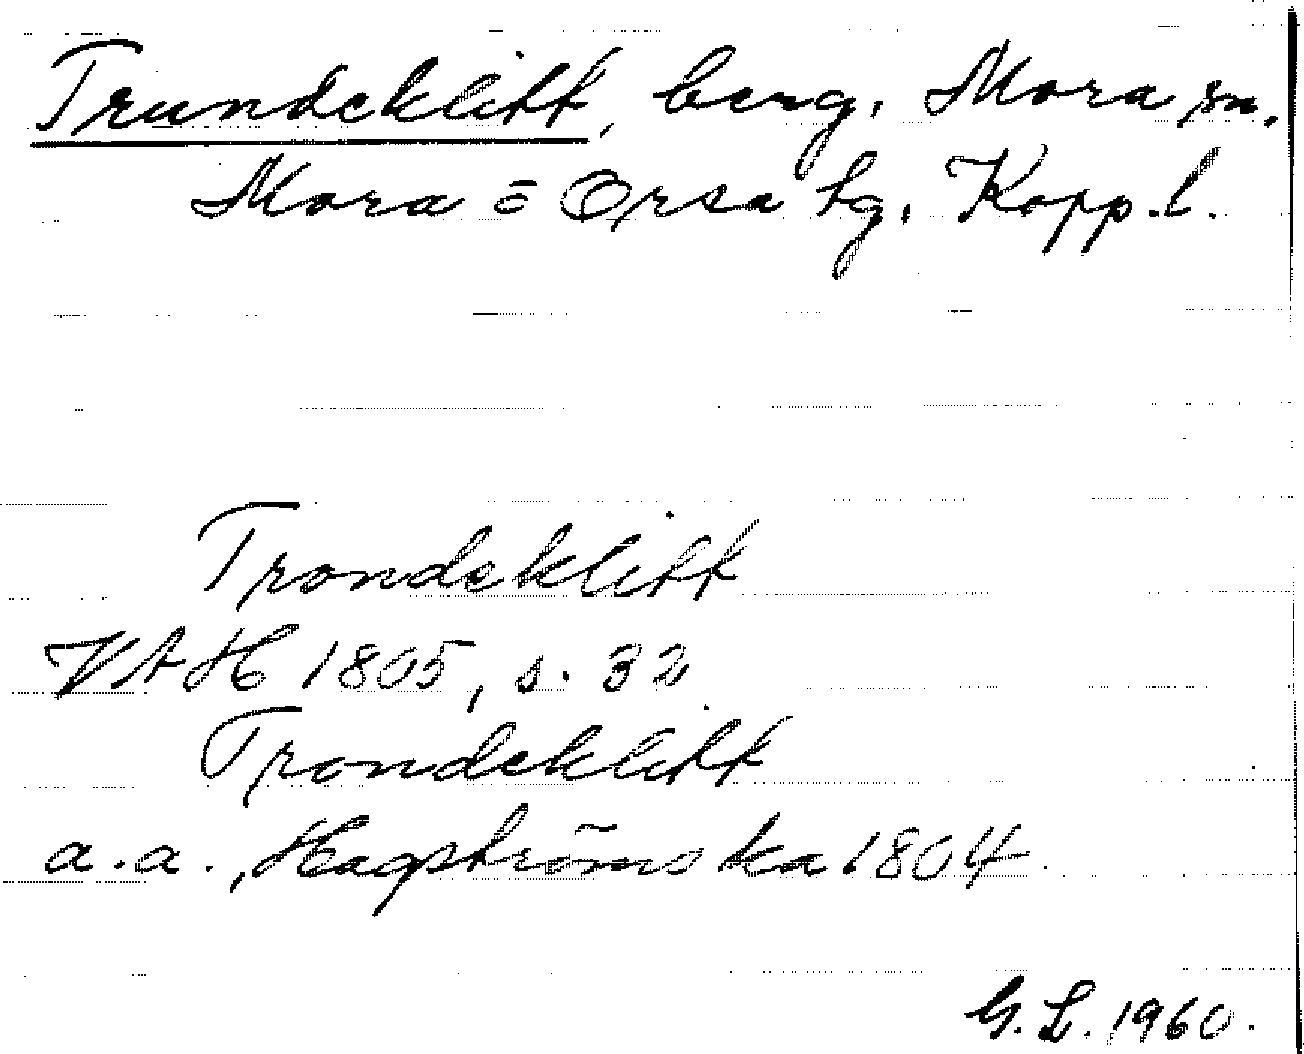 Trundeklitt, berg, Mora sn,
Mora o Orsa tg, Kopp.l.
Trondeklitt
VAH 1805, s. 32
Trondeklitt
a.a., Hagströms ka 1804
G.L. 1960.